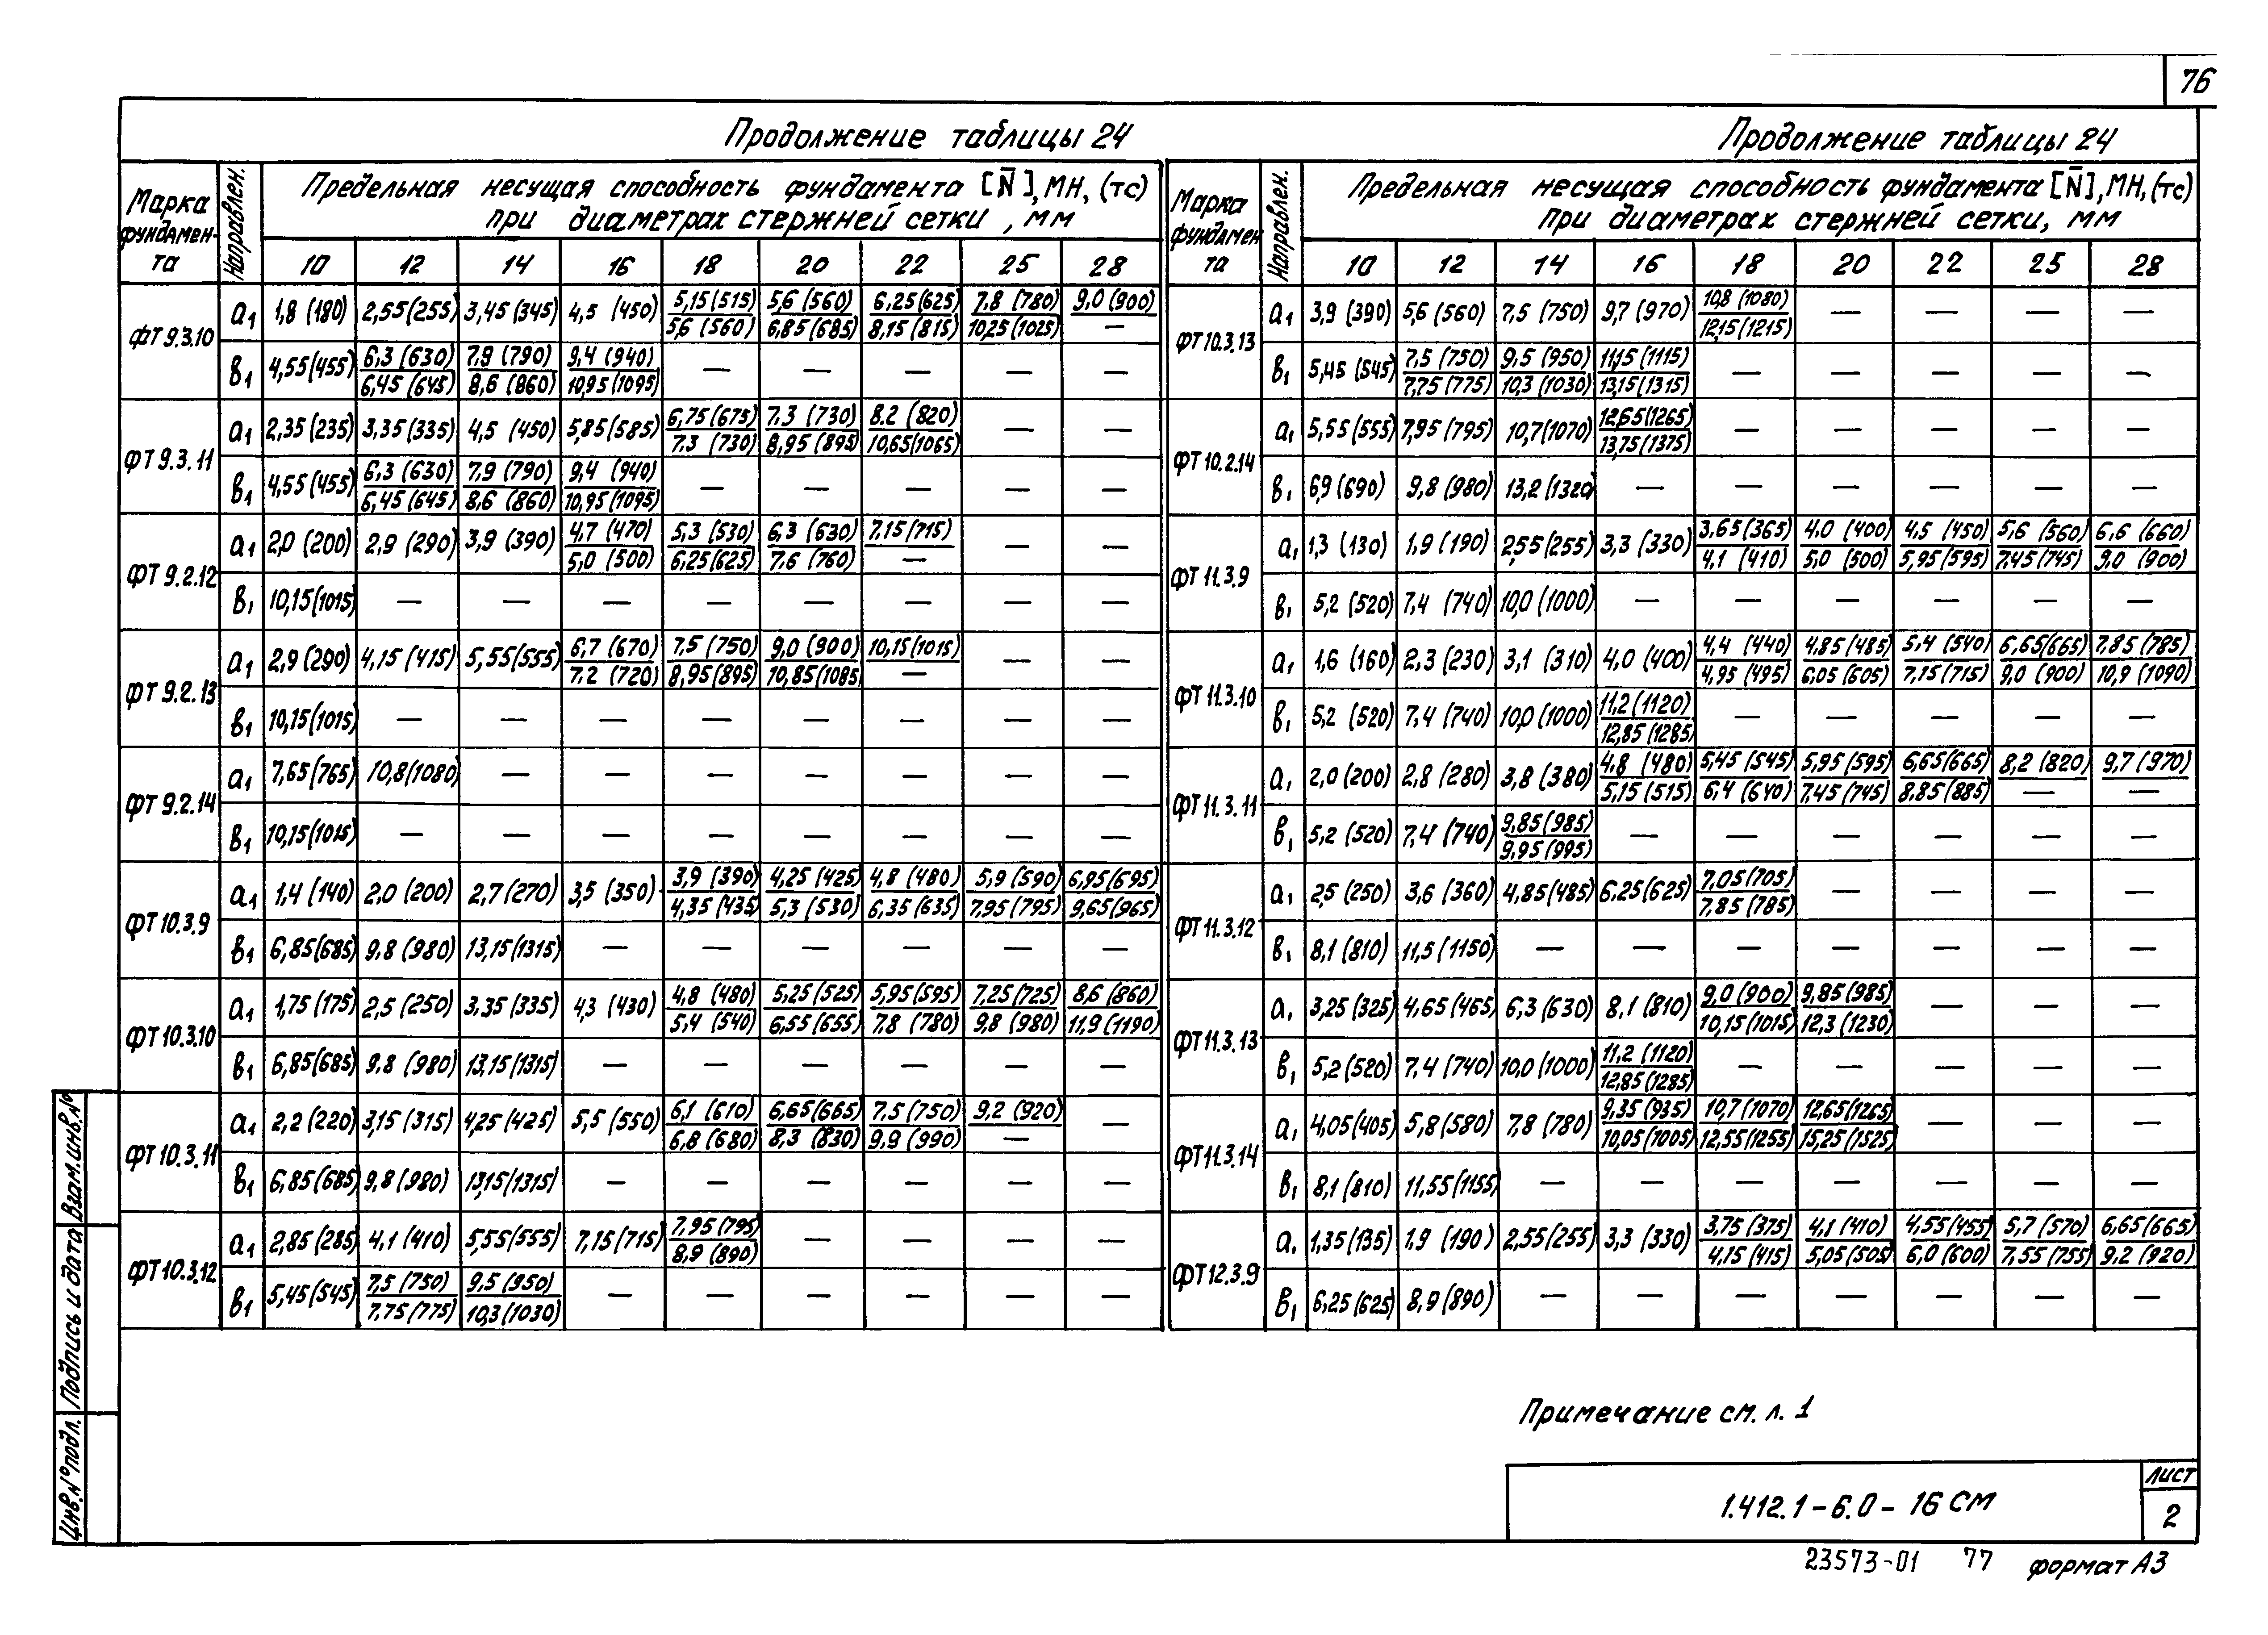 76
Продолжение таблицы 24
Марка фундамен-та | Направлен. | Предельная несущая способность фундамента [N̄], МН, (тс) при диаметрах стержней сетки, мм
10 | 12 | 14 | 16 | 18 | 20 | 22 | 25 | 28
ФТ 9.3.10 | а1 | 1,8 (180) | 2,55(255) | 3,45(345) | 4,5 (450) | 5,15(515) / 5,6 (560) | 5,6 (560) / 6,85(685) | 6,25(625) / 8,15 (815) | 7,8 (780) / 10,25 (1025) | 9,0 (900) / —
в1 | 4,55(455) | 6,3 (630) / 6,45 (645) | 7,9 (790) / 8,6 (860) | 9,4 (940) / 10,95(1095) | — | — | — | — | —
ФТ 9.3.11 | а1 | 2,35(235) | 3,35(335) | 4,5 (450) | 5,85(585) | 6,75(675) / 7,3 (730) | 7,3 (730) / 8,95 (895) | 8.2 (820) / 10,65(1065) | — | —
в1 | 4,55(455) | 6,3 (630) / 6,45(645) | 7,9 (790) / 8,6 (860) | 9,4 (940) / 10,95(1095) | — | — | — | — | —
ФТ 9.2.12 | а1 | 2,0 (200) | 2,9 (290) | 3,9 (390) | 4,7 (470) / 5,0 (500) | 5,3 (530) / 6,25(625) | 6,3 (630) / 7,6 (760) | 7,15(715) / — | — | —
в1 | 10,15(1015) | — | — | — | — | — | — | — | —
ФТ 9.2.13 | а1 | 2,9 (290) | 4,15 (415) | 5,55(555) | 6,7 (670) / 7.2 (720) | 7,5 (750) / 8,95(895) | 9,0 (900) / 10,85(1085) | 10,15(1015) / — | — | —
в1 | 10,15(1015) | — | — | — | — | — | — | — | —
ФТ 9.2.14 | а1 | 7,65(765) | 10,8(1080) | — | — | — | — | — | — | —
в1 | 10,15(1015) | — | — | — | — | — | — | — | —
ФТ 10.3.9 | а1 | 1,4 (140) | 2,0 (200) | 2,7 (270) | 3,5 (350) | 3,9 (390) / 4,35 (435) | 4,25 (425) / 5,3 (530) | 4,8 (480) / 6,35 (635) | 5,9 (590) / 7,95 (795) | 6,95(695) / 9,65(965)
в1 | 6,85(685) | 9,8 (980) | 13,15(1315) | — | — | — | — | — | —
ФТ 10.3.10 | а1 | 1,75 (175) | 2,5 (250) | 3,35 (335) | 4,3 (430) | 4,8 (480) / 5,4 (540) | 5,25 (525) / 6,55 (655) | 5,95(595) / 7,8 (780) | 7,25(725) / 9,8 (980) | 8,6 (860) / 11,9 (1190)
в1 | 6,85(685) | 9,8 (980) | 13,15(1315) | — | — | — | — | — | —
ФТ 10.3.11 | а1 | 2,2 (220) | 3,15 (315) | 4,25 (425) | 5,5 (550) | 6,1 (610) / 6,8 (680) | 6,65(665) / 8,3 (830) | 7,5 (750) / 9,9 (990) | 9,2 (920) / — | —
в1 | 6,85(685) | 9,8 (980) | 13,15(1315) | — | — | — | — | — | —
ФТ 10.3.12 | а1 | 2,85 (285) | 4,1 (410) | 5,55(555) | 7,15 (715) | 7,95 (795) / 8,9 (890) | — | — | — | —
в1 | 5,45(545) | 7,5 (750) / 7,75 (775) | 9,5 (950) / 10,3 (1030) | — | — | — | — | — | —
Продолжение таблицы 24
Марка фундамен та | Направлен. | Предельная несущая способность фундамента [N̄], МН, (тс) при диаметрах стержней сетки, мм
10 | 12 | 14 | 16 | 18 | 20 | 22 | 25 | 28
ФТ 10.3.13 | а1 | 3,9 (390) | 5,6 (560) | 7,5 (750) | 9,7 (970) | 10,8 (1080) / 12,15(1215) | — | — | — | —
в1 | 5,45 (545) | 7,5 (750) / 7,75 (775) | 9,5 (950) / 10,3 (1030) | 11,15 (1115) / 13,15 (1315) | — | — | — | — | —
ФТ 10.2.14 | а1 | 5,55(555) | 7,95 (795) | 10,7(1070) | 12,65(1265) / 13,75 (1375) | — | — | — | — | —
в1 | 6,9 (690) | 9,8 (980) | 13,2 (1320 | — | — | — | — | — | —
ФТ 11.3.9 | а1 | 1,3 (130) | 1,9 (190) | 2,55(255) | 3,3 (330) | 3,65(365) / 4,1 (410) | 4.0 (400) / 5,0 (500) | 4,5 (450) / 5,95(595) | 5,6 (560) / 7,45(745) | 6,6 (660) / 9,0 (900)
в1 | 5,2 (520) | 7,4 (740) | 10,0 (1000) | — | — | — | — | — | —
ФТ 11.3.10 | а1 | 1,6 (160) | 2,3 (230) | 3,1 (310) | 4,0 (400) | 4,4 (440) / 4,95 (495) | 4,85(485) / 6,05 (605) | 5,4 (540) / 7,15(715) | 6,65(665) / 9,0 (900) | 7,85 (785) / 10,9 (1090)
в1 | 5,2 (520) | 7,4 (740) | 10,0 (1000) | 11,2 (1120) / 12,85 (1285) | — | — | — | — | —
ФТ 11.3.11 | а1 | 2,0 (200) | 2,8 (280) | 3,8 (380) | 4,8 (480) / 5,15 (515) | 5,45 (545) / 6,4 (640) | 5,95 (595) / 7,45 (745) | 6,65(665) / 8,85 (885) | 8,2 (820) / — | 9,7 (970) / —
в1 | 5,2 (520) | 7,4 (740) | 9,85 (985) / 9,95 (995) | — | — | — | — | — | —
ФТ 11.3.12 | а1 | 2,5 (250) | 3,6 (360) | 4,85(485) | 6,25(625) | 7,05(705) / 7,85 (785) | — | — | — | —
в1 | 8,1 (810) | 11,5 (1150) | — | — | — | — | — | — | —
ФТ 11.3.13 | а1 | 3,25 (325) | 4,65 (465) | 6,3 (630) | 8,1 (810) | 9,0 (900) / 10,15 (1015) | 9,85 (985) / 12,3 (1230) | — | — | —
в1 | 5,2 (520) | 7,4 (740) | 10,0 (1000) | 11,2 (1120) / 12,85 (1285) | — | — | — | — | —
ФТ 11.3.14 | а1 | 4,05(405) | 5,8 (580) | 7,8 (780) | 9,35 (935) / 10,05 (1005) | 10,7 (1070) / 12,55(1255) | 12,65(1265) / 15,25 (1525) | — | — | —
в1 | 8,1 (810) | 11,55 (1155) | — | — | — | — | — | — | —
ФТ 12.3.9 | а1 | 1,35 (135) | 1,9 (190) | 2,55(255) | 3,3 (330) | 3,75 (375) / 4,15 (415) | 4,1 (410) / 5,05(505) | 4,55(455) / 6,0 (600) | 5,7 (570) / 7,55 (755) | 6,65 (665) / 9,2 (920)
в1 | 6,25 (625) | 8,9 (890) | — | — | — | — | — | — | —
Примечание см. л. 1
1.412.1-6.0-16 СМ
Лист
2
23573-01 77 формат А3
Взам.инв.№
Подпись и дата
Инв.№подл.